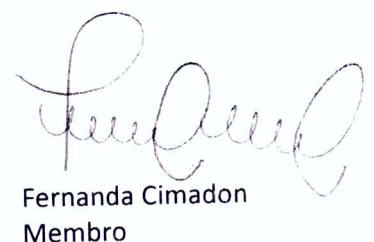 Fernanda Cimadon
Membro